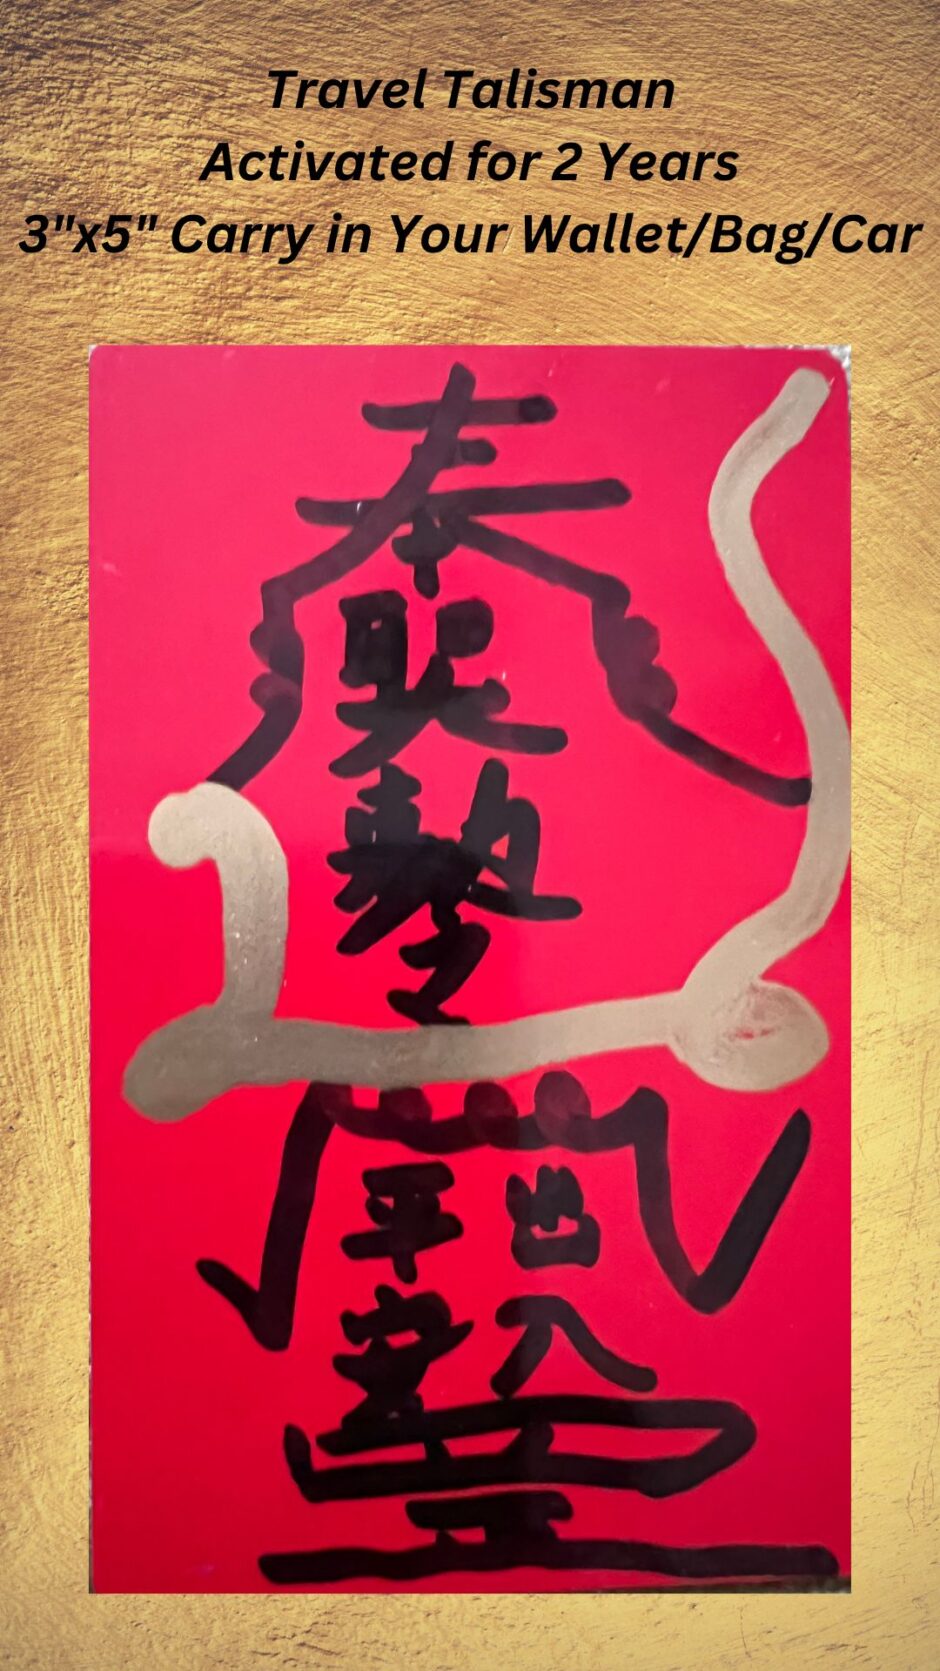 Travel Talisman
Activated for 2 Years
3"x5" Carry in Your Wallet/Bag/Car
奉
出入
平安